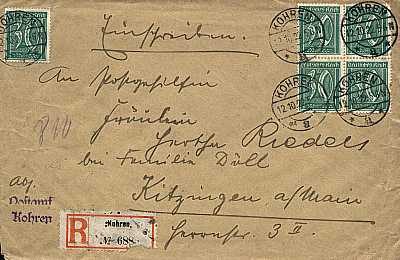 Einschreiben.
KOHREN
KOHREN
12.10.
An Postgehilfin
Fräulein
Hertha Riedels
bei Familie Döll
Kitzingen a/Main
Herrnstr. 3 II.
Abs.
Postamt
Kohren
R
Kohren.
No 688